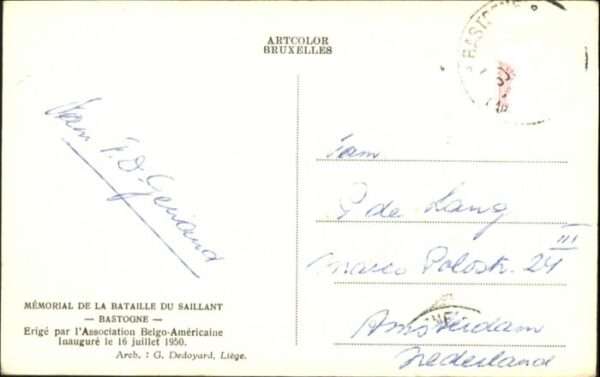 ARTCOLOR
BRUXELLES
BASTOGNE
Fam
P de Lang
Marco Polostr. 24 III
Amsterdam
Nederland
MÉMORIAL DE LA BATAILLE DU SAILLANT
— BASTOGNE —
Erigé par l'Association Belgo-Américaine
Inauguré le 16 juillet 1950.
Arch. : G. Dedoyard, Liége.